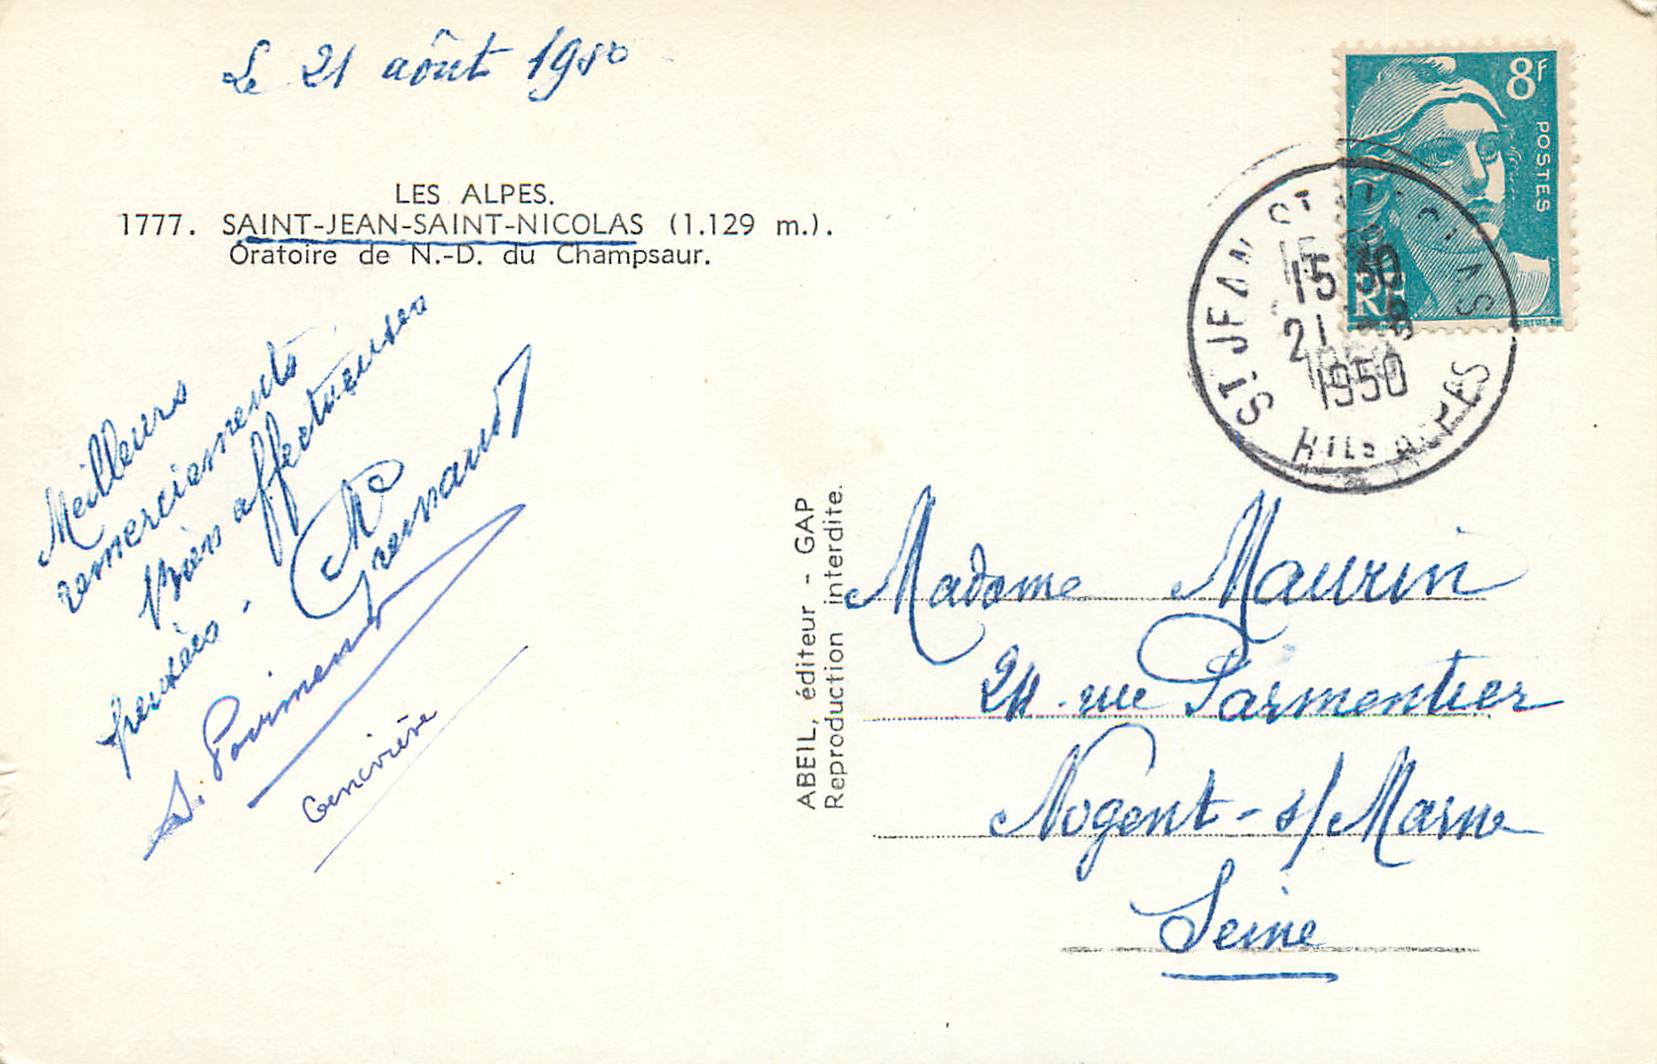 Le 21 aôut 1950
8F
POSTES
RF
LES ALPES.
1777. SAINT-JEAN-SAINT-NICOLAS (1.129 m.).
Oratoire de N.-D. du Champsaur.
ST JEAN ST NICOLAS
15 30
21 -8
1950
HTES ALPES
Meilleurs
remerciements
bien affectueuses
pensées.
Grenaudot
S. Poirmenud
Geneviève
ABEIL, éditeur - GAP
Reproduction interdite.
Madame Maurin
24 rue Parmentier
Nogent-s/Marne
Seine